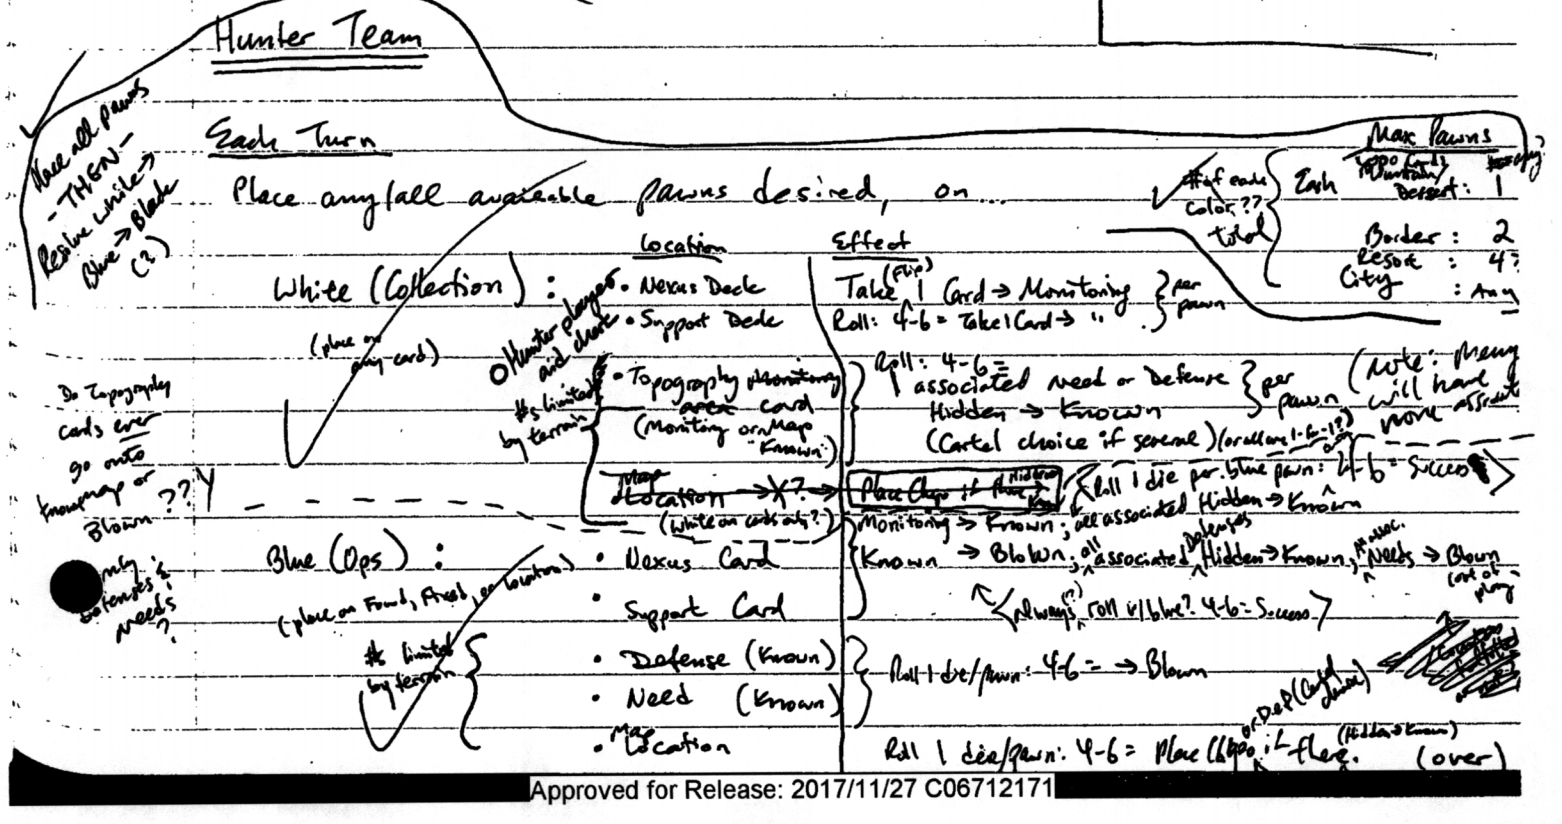 Hunter Team
Place all pawns
- THEN -
Resolve white →
Blue → Black
(?)
Each Turn
Place any/all available pawns desired, on...
Max Pawns
# of each
color??
total
Each
Topo Cards
Mountain/
Dessert: 1
Border: 2
Resort: 4?
City: Any
Location
Effect
White (Collection):
(place on
any card)
• Nexus Deck
Take (flip) 1 Card → Monitoring
• Support Deck
Roll: 4-6 = Take 1 Card → "
} per
pawn
Hunter player
and chart
#s limited
by terrain
• Topography Monitoring
area card
(Monitoring or Map
"Known")
Roll: 4-6 =
1 associated Need or Defense
Hidden → Known
(Cartel choice if several) (or all are 1-for-1?)
} per
pawn
(Note: Many
will have
more
Do Topography
cards ever
go onto
Known map or
Blown??
Only
Defenses &
Needs?
Map
Location → X? →
Place Chapo if there
Hidden
(White on cards only?)
Roll 1 die per blue pawn: 4-6 = Success
Blue (Ops):
(place on Found, Fixed, or Location)
• Nexus Card
• Support Card
Monitoring → Known; all associated Hidden → Known
Known → Blown; all associated Defenses Hidden → Known, Assoc. Needs → Blown
(out of
play)
<Always(?) roll w/blue? 4-6 = Success>
#s limited
by terrain
• Defense (Known)
• Need (Known)
Roll 1 die/pawn: 4-6 = → Blown
• Map Location
or Def (Cartel
choice)
(Hidden → Known)
Roll 1 die/pawn: 4-6 = Place Chapo if there.
(over)
Approved for Release: 2017/11/27 C06712171